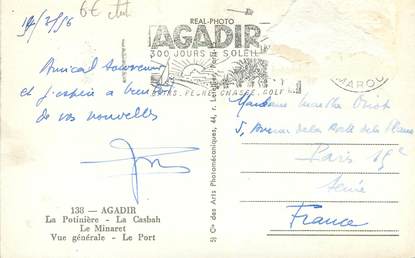 19/3/56
6€
REAL-PHOTO
AGADIR
300 JOURS DE SOLEIL
MAROC
Amical souvenir
et j'espère à bientôt
de vos nouvelles
CHASSE. GOLF
5, Avenue de la Porte de
Paris 19e
Seine
France
138 — AGADIR
La Potinière - La Casbah
Le Minaret
Vue générale - Le Port
Cie des Arts Photomécaniques, 44, r.